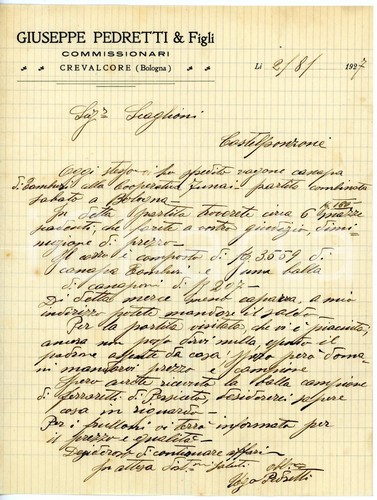 GIUSEPPE PEDRETTI & Figli
COMMISSIONARI
CREVALCORE (Bologna)
Lì 2/8/ 1927
Sig.r Scaglioni
Castelponzone
Oggi stesso vi ho spedito vagone canapa
di Zambini alla Cooperativa Funai partita combinata
sabato a Bologna -
In detta partita troverete circa 6 mazze
K 100
che farete a vostro giudizio, dimi-
nuzione di prezzo -
Il carro è composto di K 3.559 di
canapa e una balla
di canaponi di K 207 -
Di detta merce caparra, a mio
indirizzo potete mandare il saldo -
Per la partita visitata, che vi è piaciuta,
ancora non posso dirvi nulla, essendo il
padrone assente da casa spero però doma-
ni mandarvi prezzo e campione
Spero avrete ricevuta la balla campione
di di Persiceto, desidererei sapere
cosa in riguardo -
Per i vi terrò informato per
il prezzo e qualità -
Desideroso di continuare affari -
In attesa saluti
Pedretti